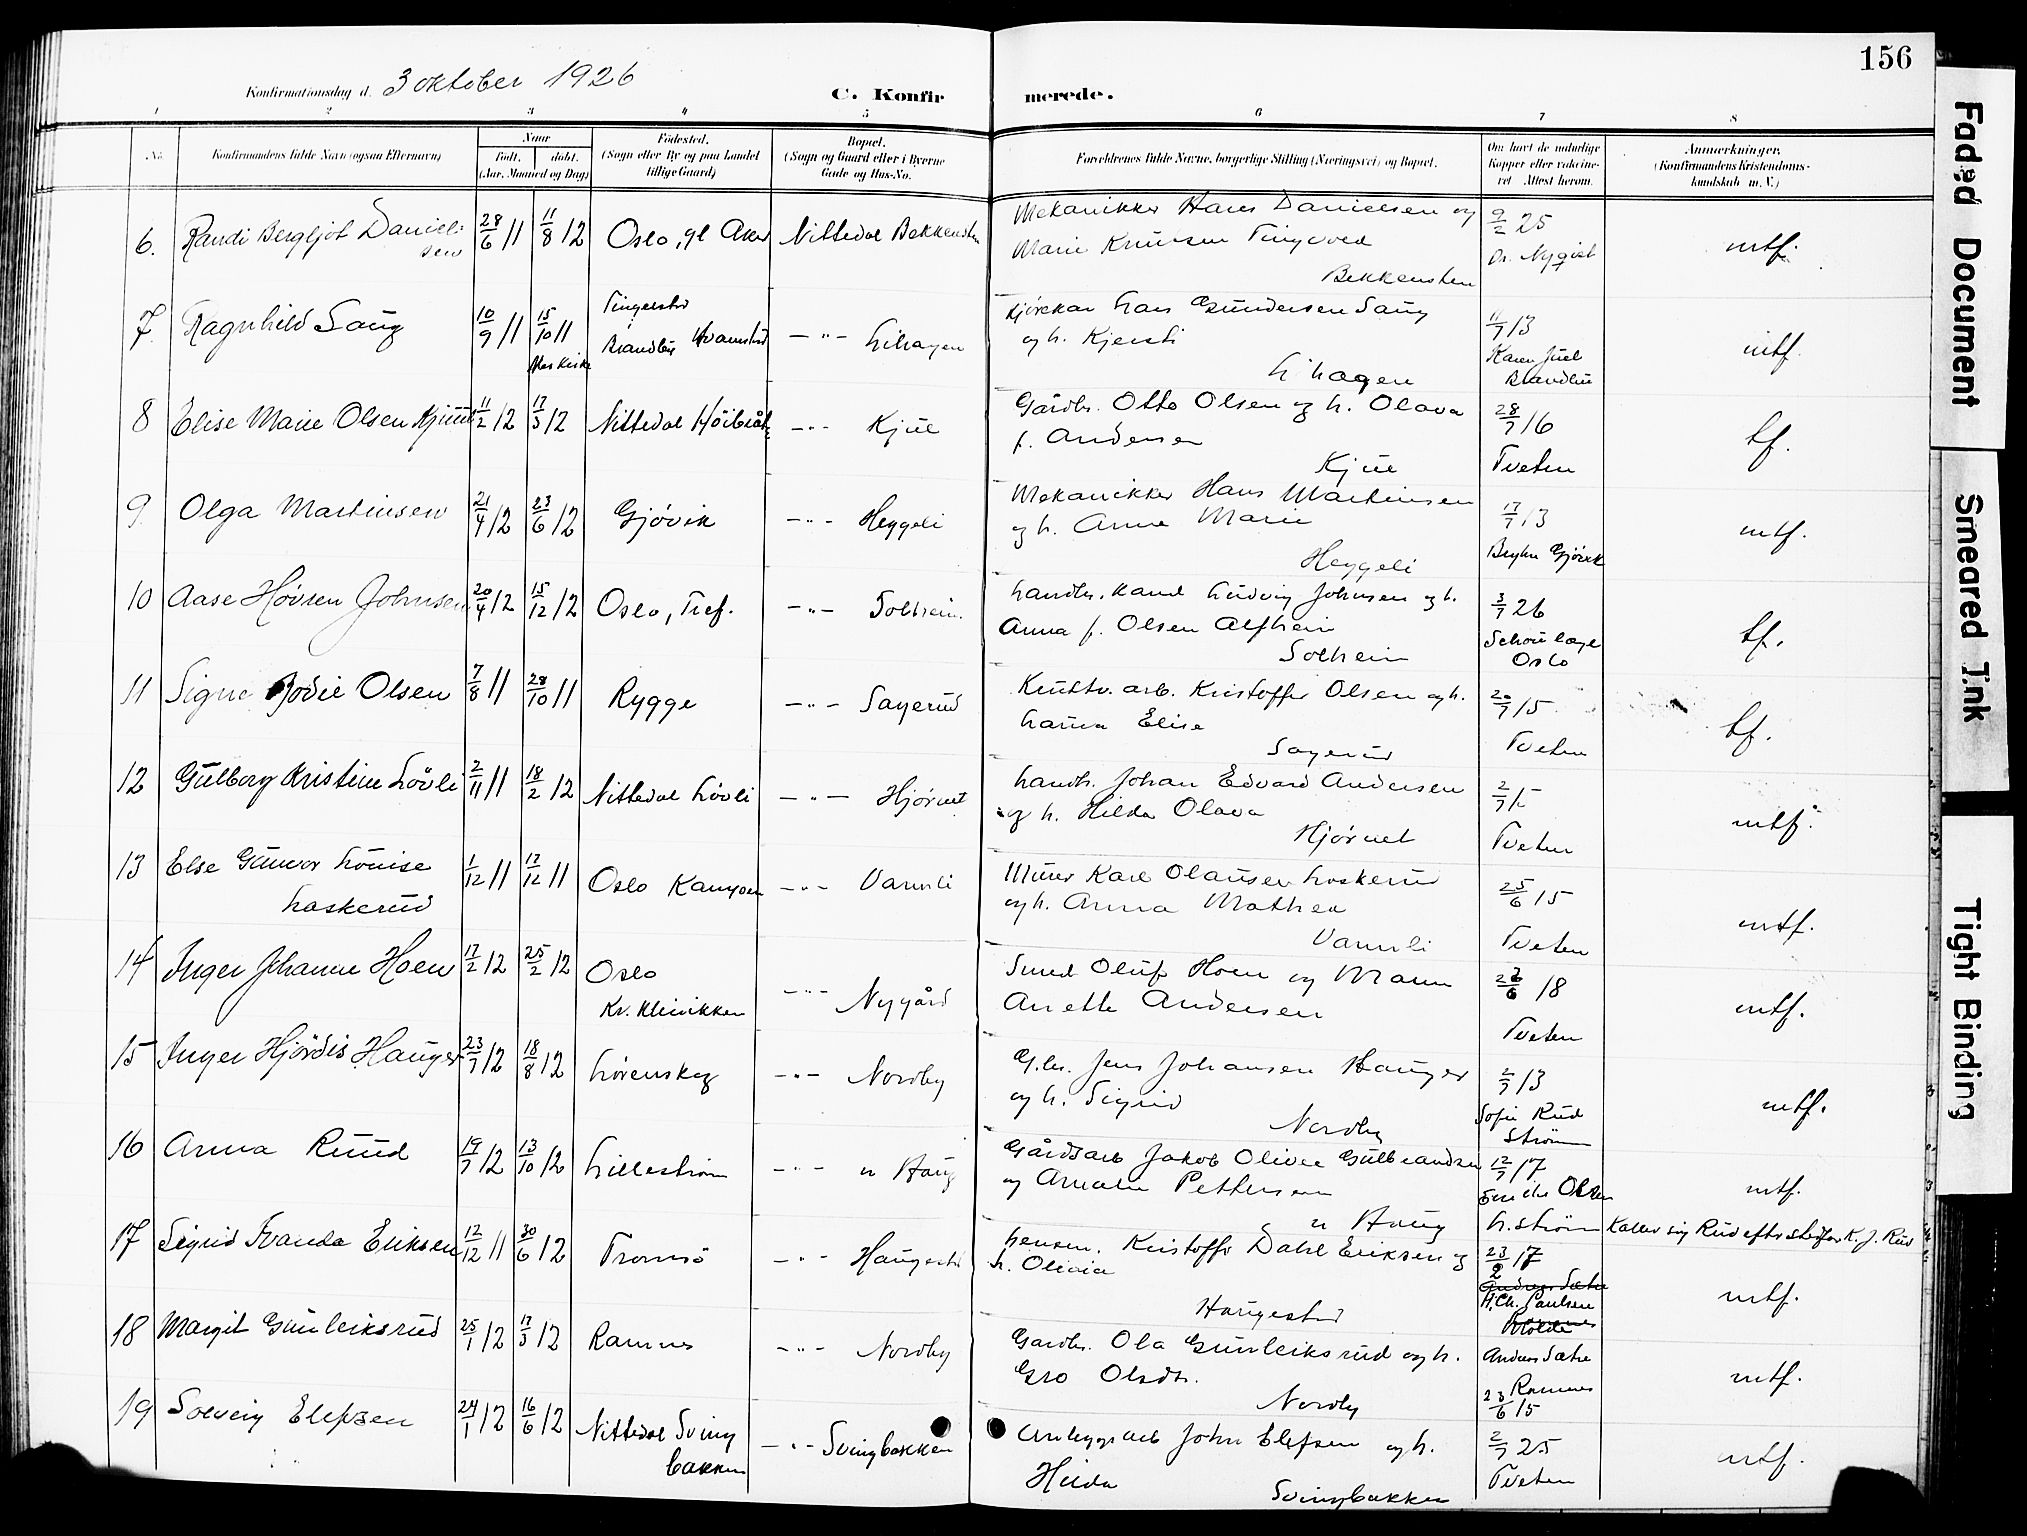 156
Konfirmationsdag d. 3 oktober 1926
C. Konfirmerede.
1 2 3 4 5 6 7 8
No.
Konfirmandens fulde Navn (ogsaa Efternavn)
Naar
født. døbt.
(Aar, Maaned og Dag)
Fødested.
(Sogn eller By og paa Landet
tillige Gaard)
Bopæl.
(Sogn og Gaard eller i Byerne
Gade og Hus-No.
Forældrenes fulde Navne, borgerlige Stilling (Næringsvei) og Bopæl.
Om havt de naturlige
Kopper eller vaccine-
ret Attest herom.
Anmærkninger.
(Konfirmandens Kristendoms-
kundskab m. V.)
6. Randi Bergljot Daniel-
sen
28/6 11 11/8 12 Oslo, gl Aker Nittedal Bekkensten
Mekanikker Hans Danielsen og
Marie Knutsen Tingvold
Bekkensten
9/2 25
Dr. Nyqist
mtf.
7. Ragnhild Saug
10/9 11 15/10 11
Tingelstad
Brandbu
- " -
Hans Gundersen Saug
og h. Kjersti
11/7 13
Karen Juel
Brandbu
mtf.
8 Elise Marie Olsen Kjuul
11/2 12 17/3 12 Nittedal - " - Kjul
Gårdbr. Otto Olsen og h. Olava
f. Andersen
Kjul
28/7 16
Tveten
tf.
9. Olga Martinsen
21/4 12 23/6 12 Gjøvik - " - Heggeli
Mekanikker Hans Martinsen
og h. Anna Marie
Heggeli
17/7 13
Gjøvik
mtf.
10 Aase Høvsen Johnsen
20/4 12 15/12 12 Oslo, Tref. - " - Solheim.
Ludvig Johnsen og h.
Anna f. Olsen Alfheim
Solheim
3/7 26
Oslo
tf.
11 Signe Bodil Olsen
7/8 11 28/10 11 Rygge - " - Sagerud
Kruttv. arb. Kristoffer Olsen og h.
Hanna Elise
Sagerud
20/7 15
Tveten
tf.
12 Gulborg Kristine Løvli
2/11 11 18/2 12 Nittedal Løvli - " - Hjørnet
Johan Edvard Andersen
og h. Hilda Olava
Hjørnet
Tveten
mtf.
13 Else Gunvor Louise
Loskerud
1/12 11 17/12 11 Oslo Kampen - " - Vannli
Murer Karl Olausen Loskerud
og h. Anna Mathea
Vannli
25/6 15
Tveten
mtf.
14 Inger Johanne Hoen
17/2 12 25/2 12 Oslo
Kv. Klinikken
- " - Nygård
Smed Oluf Hoen og
Anette Andersen
18
Tveten
mtf.
15 Inger Hjørdis Hauger
23/7 12 18/8 12 Lørenskog - " - Nordby
G.br. Jens Johansen Hauger
og h. Sigrid
Nordby
2/7 13
Sofie Rud
Strøm
mtf.
16 Anna Ruud
19/7 12 13/10 12 Lillestrøm - " - n Haug
Gårdsarb Jakob Oliver Gulbrandsen
og Amalie Pettersen
n Haug
12/7 17
Olsen
L.strøm
mtf.
Kaller sig Rud efter stedfar K. J. Rud
17 Sigrid Wanda Eriksen
12/12 11 30/6 12 Tromsø - " - Haugestad
Kristoffer Dahl Eriksen og
h. Olivia
Haugestad
23/2 17
Andreas Sætre
H. Ch. Paulsen
Molde
mtf.
18 Margit Gunleiksrud
25/1 12 17/3 12 Ramnes - " - Nordby
Gardbr. Ola Gunleiksrud og h.
Gro Olsdtr.
Nordby
Anders Sætre
Ramnes
23/6 15
mtf.
19 Solveig Elefsen
24/1 12 16/6 12 Nittedal Sving
bakken
- " - Svingbakken
Anleggsarb John Elefsen og h.
Hilda
Svingbakken
2/7 25
Tveten
mtf.
Faded Document
Smeared Ink
Tight Binding